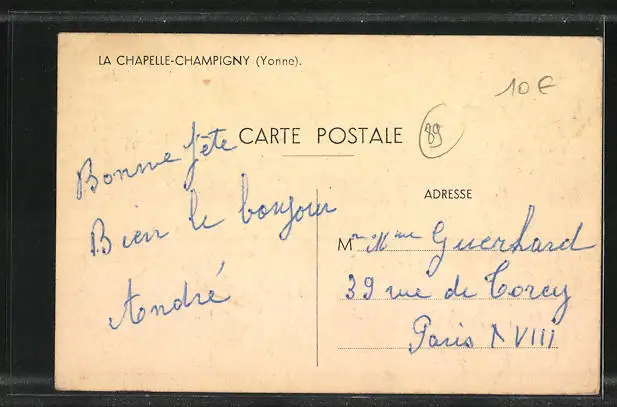 LA CHAPELLE-CHAMPIGNY (Yonne).
10 €
CARTE POSTALE
89
Bonne fête
Bien le bonjour
André
ADRESSE
Mr Mme Guerhard
39 rue de Torcy
Paris XVIII